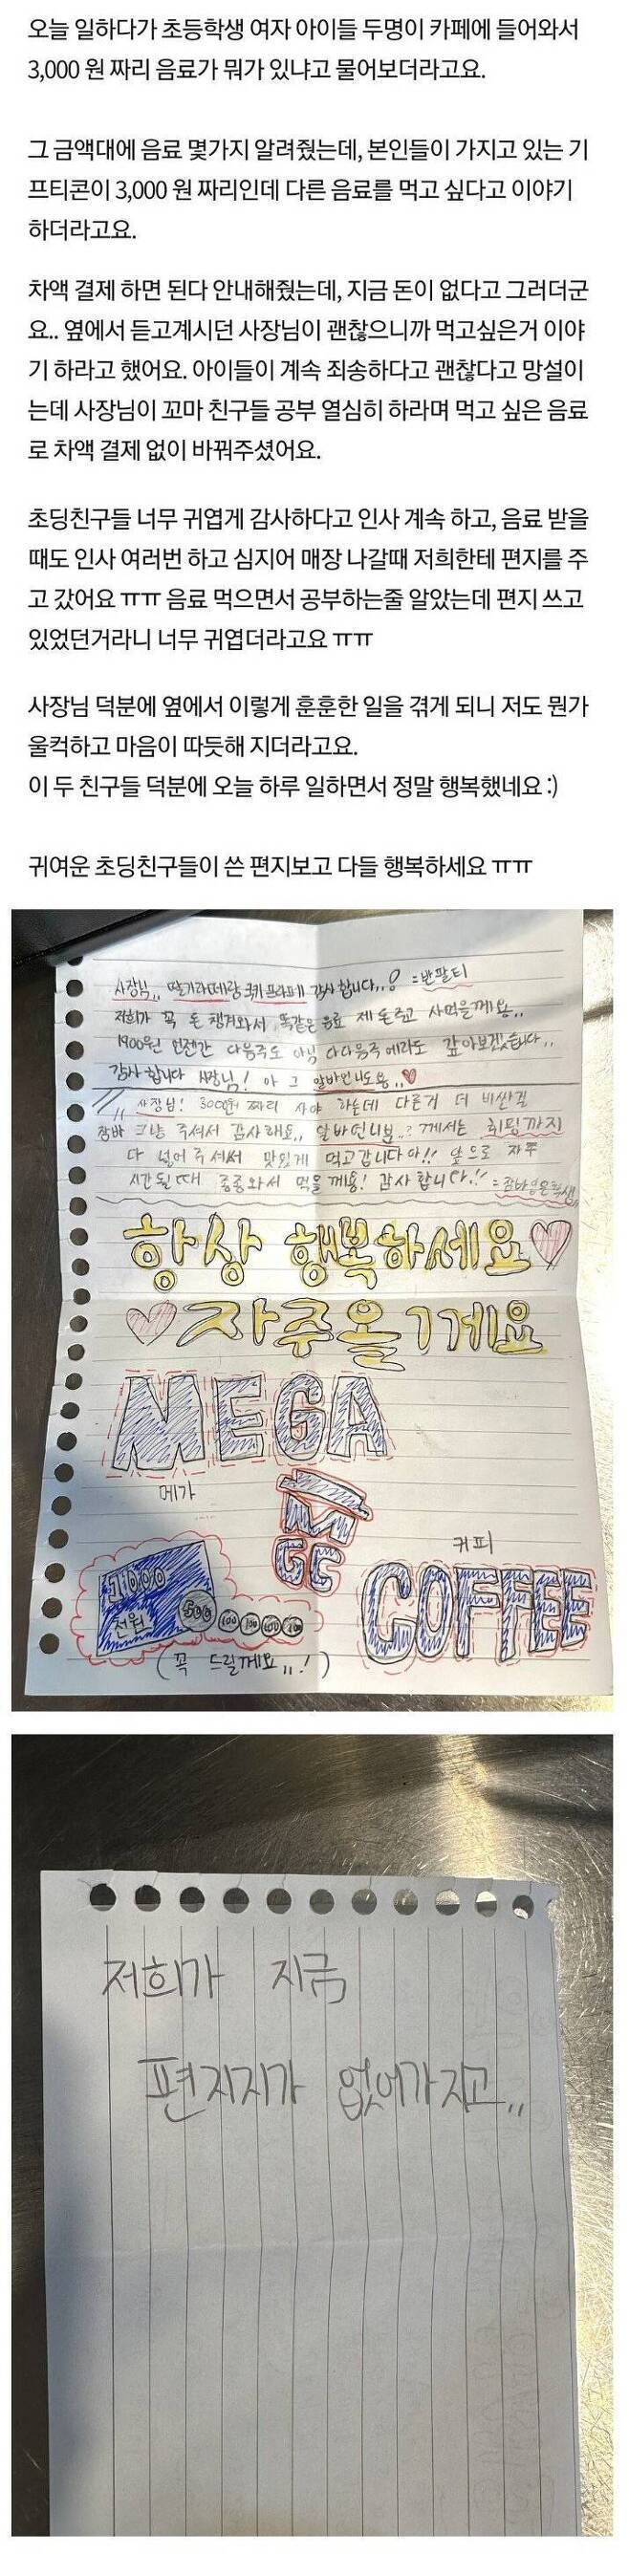 오늘 일하다가 초등학생 여자 아이들 두명이 카페에 들어와서
3,000 원 짜리 음료가 뭐가 있냐고 물어보더라고요.
그 금액대에 음료 몇가지 알려줬는데, 본인들이 가지고 있는 기
프티콘이 3,000 원 짜리인데 다른 음료를 먹고 싶다고 이야기
하더라고요.
차액 결제 하면 된다 안내해줬는데, 지금 돈이 없다고 그러더군
요.. 옆에서 듣고계시던 사장님이 괜찮으니까 먹고싶은거 이야
기 하라고 했어요. 아이들이 계속 죄송하다고 괜찮다고 망설이
는데 사장님이 꼬마 친구들 공부 열심히 하라며 먹고 싶은 음료
로 차액 결제 없이 바꿔주셨어요.
초딩친구들 너무 귀엽게 감사하다고 인사 계속 하고, 음료 받을
때도 인사 여러번 하고 심지어 매장 나갈때 저희한테 편지를 주
고 갔어요 ㅠㅠ 음료 먹으면서 공부하는줄 알았는데 편지 쓰고
있었던거라니 너무 귀엽더라고요 ㅠㅠ
사장님 덕분에 옆에서 이렇게 훈훈한 일을 겪게 되니 저도 뭔가
울컥하고 마음이 따듯해 지더라고요.
이 두 친구들 덕분에 오늘 하루 일하면서 정말 행복했네요 :)
귀여운 초딩친구들이 쓴 편지보고 다들 행복하세요 ㅠㅠ
사장님,, 딸기라떼랑 쿠키프라페 감사합니다..! =반팔티
저희가 꼭 돈 챙겨와서 똑같은 음료 제 돈주고 사먹을께요..
1900원 언젠간 다음주도 아님 다다음주에라도 갚아보겠습니다..
감사합니다 사장님! 아 그 알바언니도용..♥
사장님! 3000원 짜리 사야 하는데 다른거 더 비싼걸
그냥 주셔서 감사해요,, 알바언니분..? 께서는 휘핑까지
다 넣어주셔서 맛있게 먹고갑니다아!! 앞으로 자주
시간될때 종종와서 먹을께용! 감사합니다!!
항상 행복하세요♥
♥자주올게요
MEGA
메가
M
GC
커피
COFFEE
1000
천원
500
100
100
100
100
(꼭 드릴께요,,!)
저희가 지금
편지지가 없어가지고..